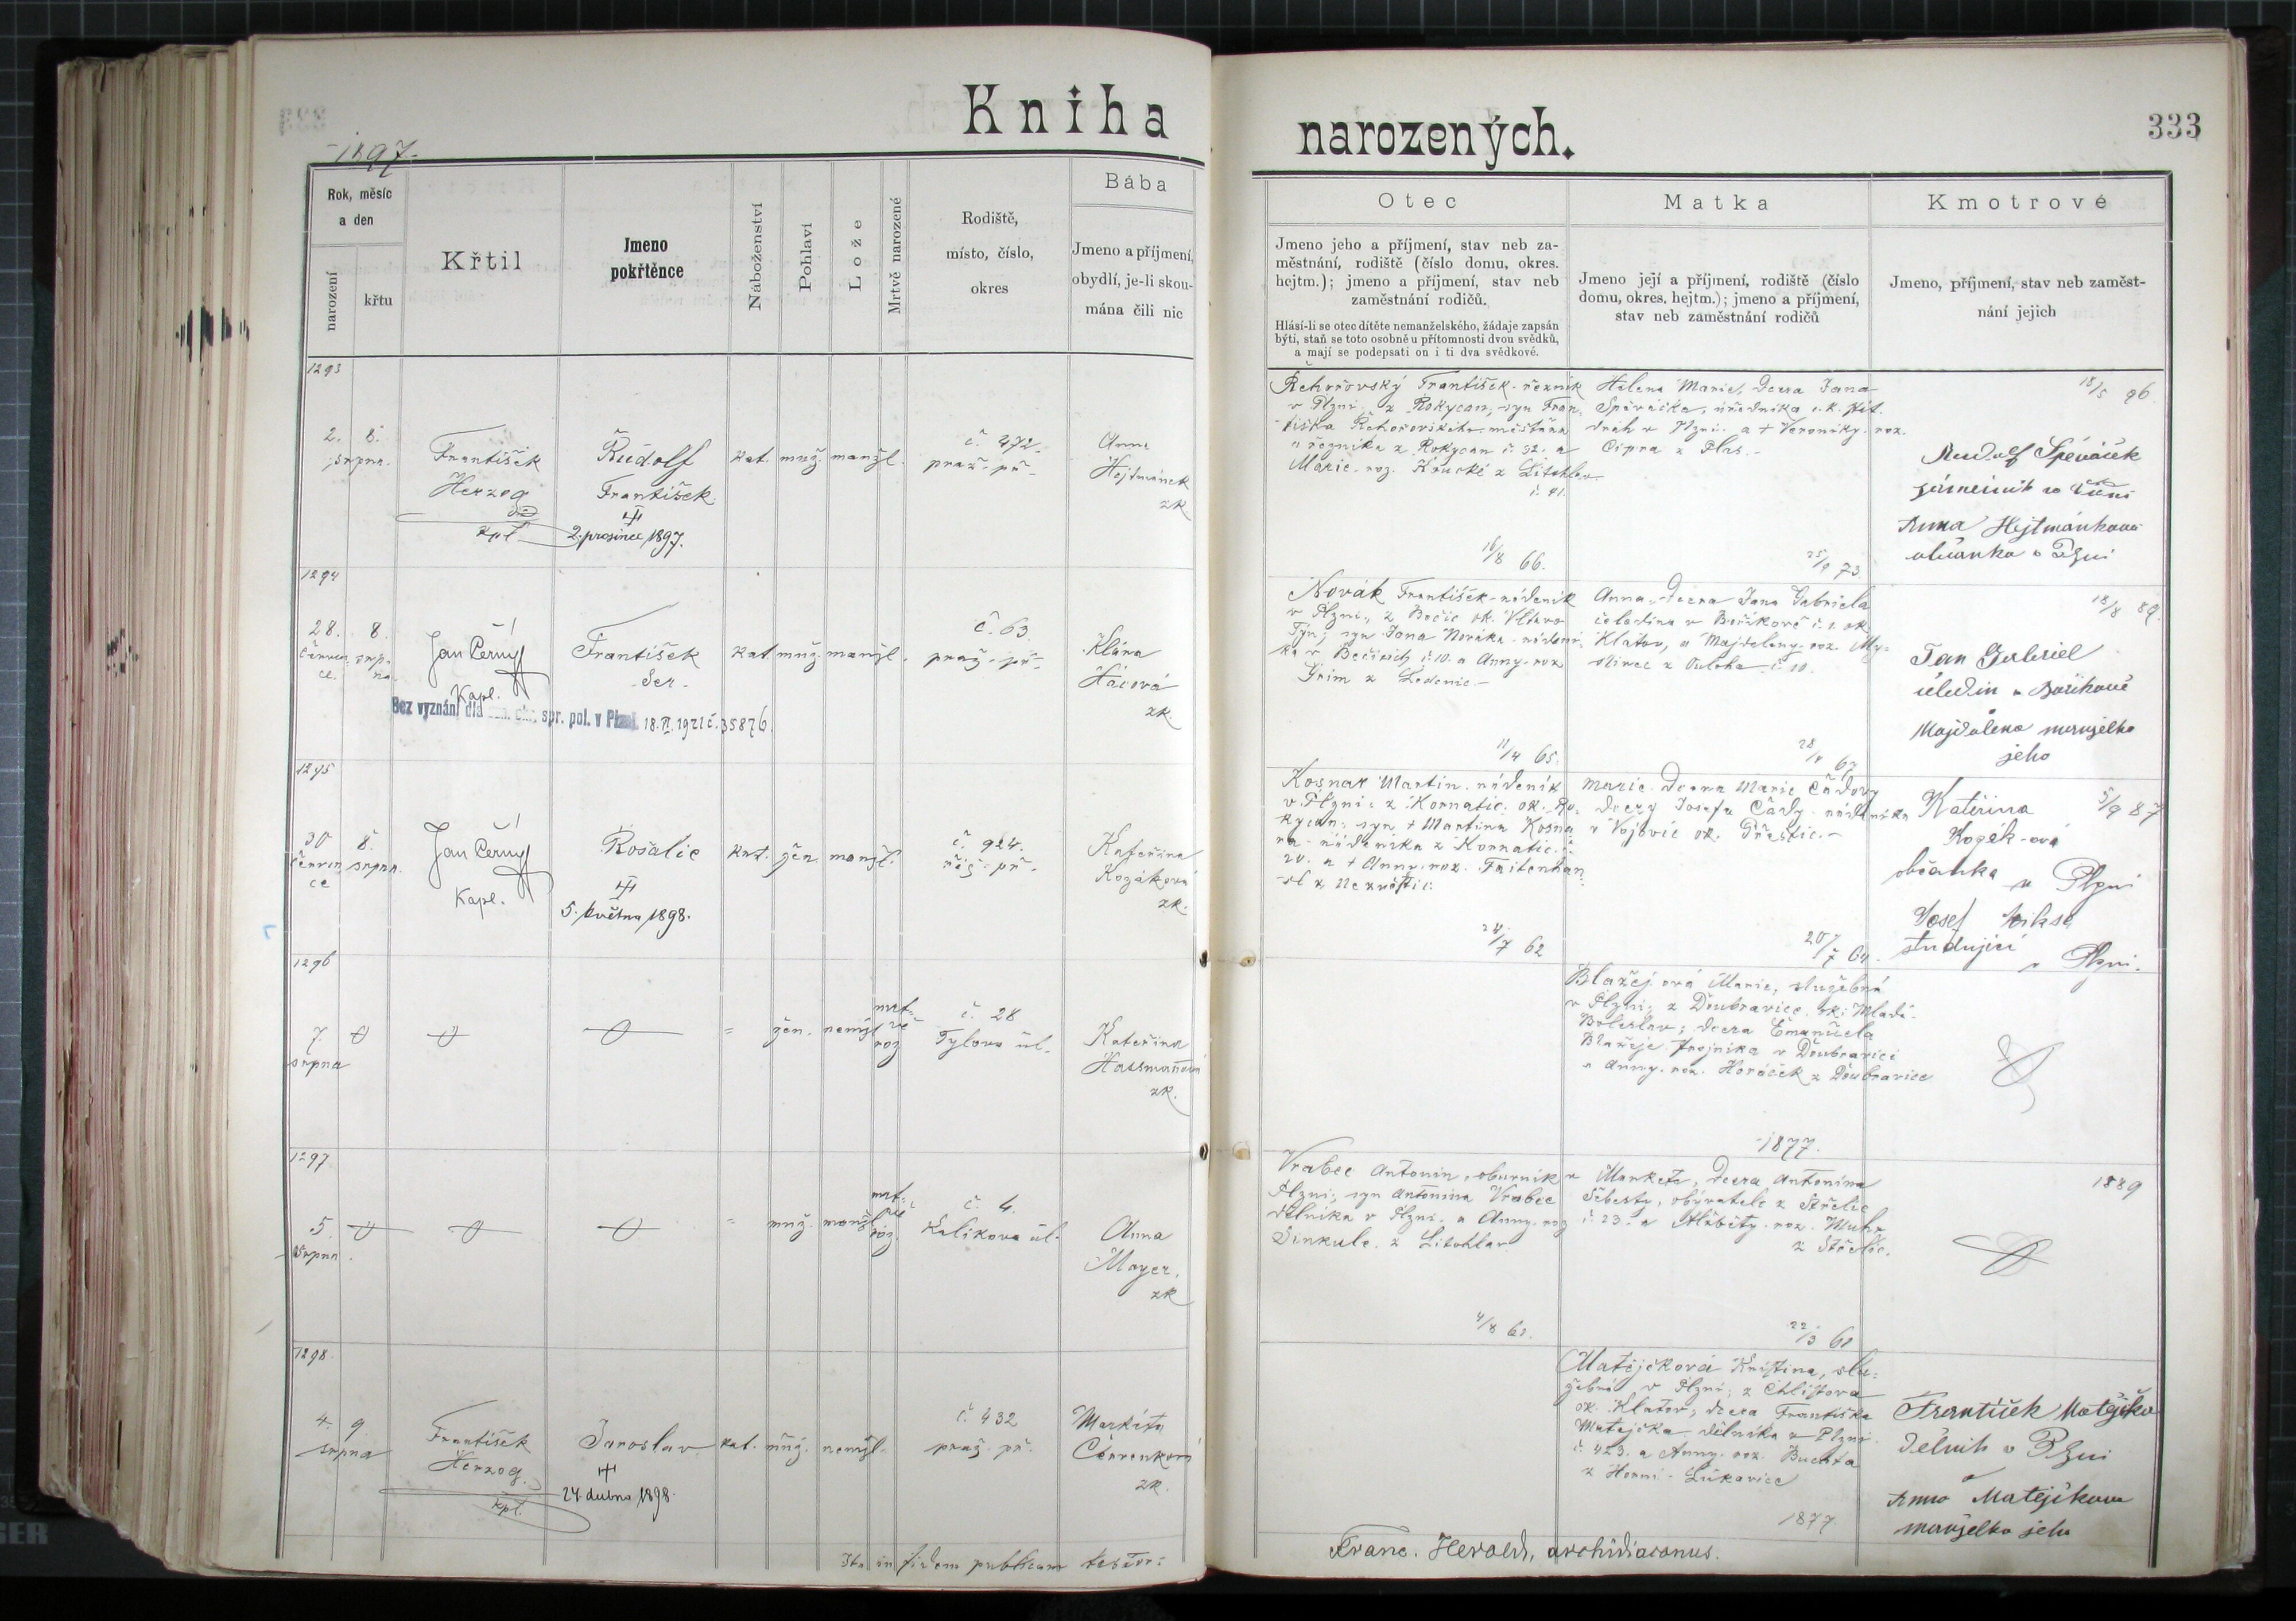 Kniha
narozených.
333
1897.
Rok, měsíc
a den
narození
křtu
Křtil
Jmeno
pokřtěnce
Náboženství
Pohlaví
Lože
Mrtvě narozené
Rodiště,
místo, číslo,
okres
Bába
Jmeno a příjmení,
obydlí, je-li skou-
mána čili nic
Otec
Jmeno jeho a příjmení, stav neb za-
městnání, rodiště (číslo domu, okres.
hejtm.); jmeno a příjmení, stav neb
zaměstnání rodičů.
Hlásí-li se otec dítěte nemanželského, žádaje zapsán
býti, staň se toto osobně u přítomnosti dvou svědků,
a mají se podepsati on i ti dva svědkové.
Matka
Jmeno její a příjmení, rodiště (číslo
domu, okres, hejtm.); jmeno a příjmení,
stav neb zaměstnání rodičů
Kmotrové
Jmeno, příjmení, stav neb zaměst-
nání jejich
1293
2. 8.
srpna.
František
Herzog
kpl.
Rudolf
František.
2. prosince 1897.
kat. muž. manžl.
č. 472.
praž. př.
Anna
Hejtmánek
zk.
Řehořovský František řezník
v Plzni, z Rokycan, syn Fran-
tiška Řehořovského měšťána
a řezníka z Rokycan č. 32. a
Marie roz. Koucké z Litohlav
č. 41.
16/8 66.
Helena Marie, dcera Jana
Spěváčka, úředníka c. k. stát.
drah v Plzni a + Veroniky roz.
Cipra z Plas.
25/9 73.
18/5 96.
Rudolf Spěváček
Anna Hejtmánková
občanka v Plzni
1294
28. 8.
červen srp-
ce. na.
Jan Černý
Kapl.
František
Ser.
kat. muž. manžl.
č. 63.
praž. př.
Klára
Hácová
zk.
Bez vyznání dle spr. pol. v Plzni. 18.II.1921 č. 35876.
Novák František nádeník
v Plzni, z Bečic ok. Vltavo
Týn; syn Jana Nováka nádení-
ka v Bečicích č. 10. a Anny roz.
Grim z Ledenic.
11/4 65.
Anna, dcera Jana Gabriela
čeledína v Bořikově č. 1. ok.
Klatov, a Majdaleny roz. My-
slivec z Ouloha č. 10.
18/8 89.
Jan Gabriel
čeledín v Bořikově
a
Majdalena manželka
jeho
1295
30 8.
červen srpna.
ce
Jan Černý
Kapl.
Rosalie
5. května 1898.
kat. žen. manžl.
č. 924.
říš. př.
Kateřina
Kozáková
zk.
Kosnar Martin nádeník
v Plzni z Kornatic ok. Ro-
kycan, syn + Martina Kosna-
ra nádeníka z Kornatic č.
20. a + Anny roz. Faitenhan-
sl z Nezvěstic.
24/7 62
Marie dcera Marie Čádovy
dcery Josefa Čády nádeníka
v Vojovic ok. Přeštic.
20/7 64.
5/9 87
Kateřina
Kozák-ová
občanka
v Plzni
Josef
studující
v Plzni.
1296
7.
srpna
žen. nemžl.
mrt-
vě
roz
č. 28
Tylova ul.
Kateřina
Hassmanová
zk.
Blažejová Marie, služebná
v Plzni, z Doubravice ok. Mladá
Boleslav; dcera Emanuela
Blažeje trojníka v Doubravici
a Anny roz. Horáček z Doubravice
1877.
1297
5.
srpna.
muž. manžl.
mrt-
vě
roz.
č. 4.
Kalikova ul.
Anna
Mayer,
zk
Vrabec Antonín, obuvník v
Plzni, syn Antonína Vrabce
dělníka v Plzni a Anny roz
Sinkule z Litohlav
4/8 62.
Markéta, dcera Antonína
Šebesty, obyvatele z Střelic
č. 23. a Alžběty roz. Muhr
z Střelic.
22/3 61
1889
1298.
4. 9
srpna
František
Herzog.
kpl.
Jaroslav
24. dubna 1898.
kat. muž. nemžl.
č. 432
praž. př.
Markéta
Červenková
zk.
Matějčková Kristina, slu-
žebná v Plzni; z Chlistova
ok. Klatov, dcera Františka
Matejčka dělníka v Plzni
č. 423. a Anny roz. Buchta
z Horní Lukavice
1877.
František Matějčka
dělník v Plzni
a
Anna Matějčkova
manželka jeho
Ita in fidem publicam testor:
Franc. Herold, archidiaconus.